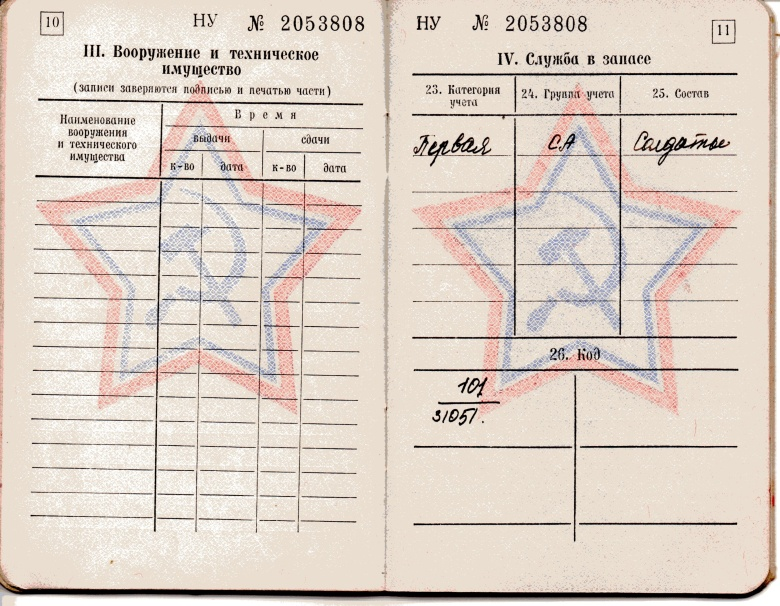 10
НУ № 2053808
III. Вооружение и техническое
имущество
(записи заверяются подписью и печатью части)
Наименование
вооружения
и технического
имущества
Время
выдачи
сдачи
к-во
дата
к-во
дата
НУ № 2053808
11
IV. Служба в запасе
23. Категория
учета
24. Группа учета
25. Состав
Первая
СА
Солдаты
26. Код
101
31051.